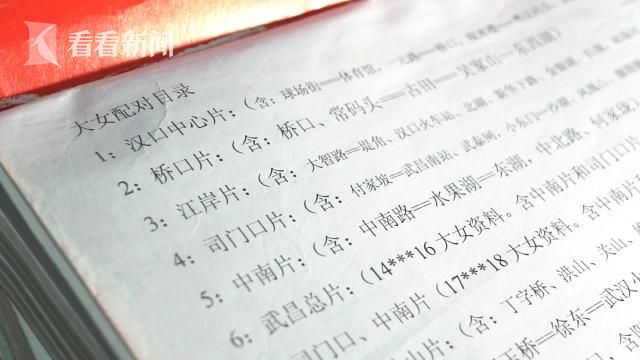 看看新闻
大女配对目录
1：汉口中心片：（含：球场街══体育馆，一元路══桥口，
2：桥口片：（含：桥口、常码头══古田══吴家山══东西湖）
3：江岸片：（含：大智路══堤角、汉口火车站、北湖、新华下路、
4：司门口片：（含：付家坡══武昌南站、武泰闸、小东门══沙湖、凤凰山、
5：中南片：（含：中南路══水果湖══东湖，中北路、何家垅
6：武昌总片：（14***16大女资料。含中南片和司门口片
司门口、中南片（17***18大女资料。含中南片
山片：（含：丁字桥、洪山、关山、
王桥══徐东══武汉